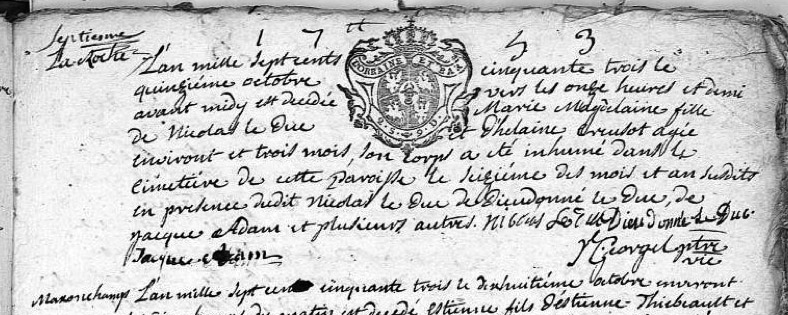 Septiesme
La Roche
1 7 tt 5 3
L'an mille sept cents cinquante trois le
quinziéme octobre vers les onze heures et demi
avant midy est decedée Marie Magdelaine fille
de Nicolas le Duc et d'helaine creusot agée
environt et trois mois, son corps a été inhumé dans le
cimetiére de cette paroisse le seiziéme des mois et an susdits
en presence dudit Nicolas le Duc de Dieudonné le Duc, de
jacque Adam et plusieurs autres. Nicolas Le Duc Dieudonné le Duc
Jaque Adam Georgel ptre
vic
LORRAINE ET BAR
Maxonchamps L'an mille sept cent cinquante trois le dixhuitiéme octobre environt
est decedé Estienne fils d'éstienne Thiebeault et